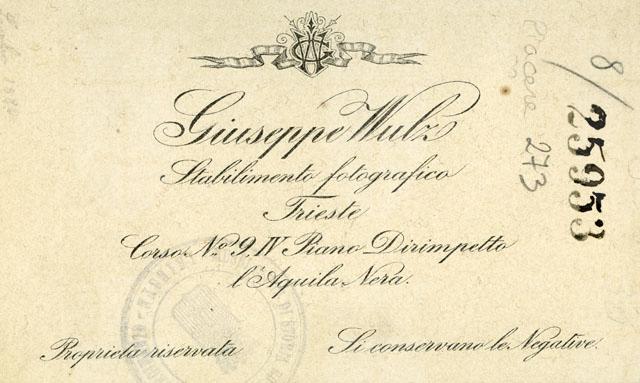 Giuseppe Wulz
Stabilimento fotografico
Trieste
Corso No. 9, IV Piano Dirimpetto
l'Aquila Nera.
Proprietà riservata
Si conservano le Negative.
8/
25953
273